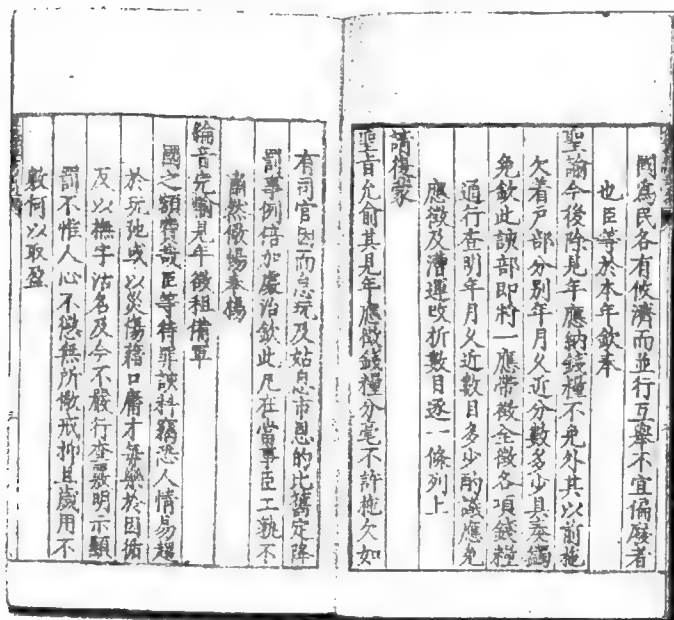 閭為民各有攸濟而並行互舉不宜偏廢者
也臣等於本年欽奉
聖諭今後除見年應納錢糧不免外其以前拖
欠着戶部分別年月久近分數多少具奏蠲
免欽此該部即將一應帶徵全徵各項錢糧
通行查明年月久近數目多少酌議應免
應徵及漕運改折數目逐一條列上
請復蒙
聖旨允俞其見年應徵錢糧分毫不許拖欠如
有司官因而怠玩及姑息市恩的比舊定降
罰事例倍加處治欽此凡在當事臣工孰不
肅然儆惕奉揚
綸音完輸見年徵租備軍
國之額費哉臣等待罪該科竊恐人情易趨
於玩弛或以災傷藉口庸才每樂於因循
及以撫字沽名及今不嚴行查覈明示顯
罰不惟人心不 無所儆戒抑且歲用不
數何以取盈